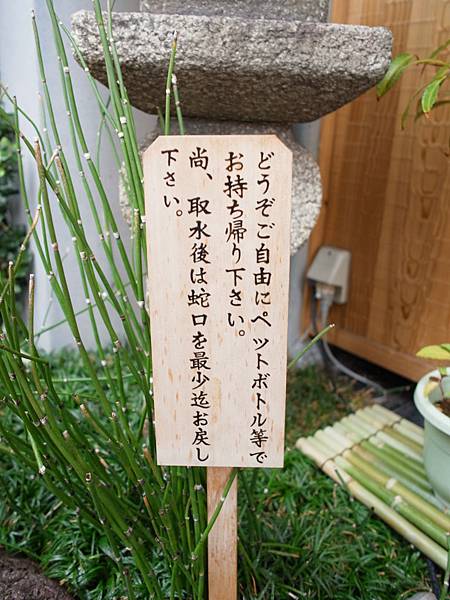 どうぞご自由にペットボトル等で
お持ち帰り下さい。
尚、取水後は蛇口を最少迄お戻し
下さい。